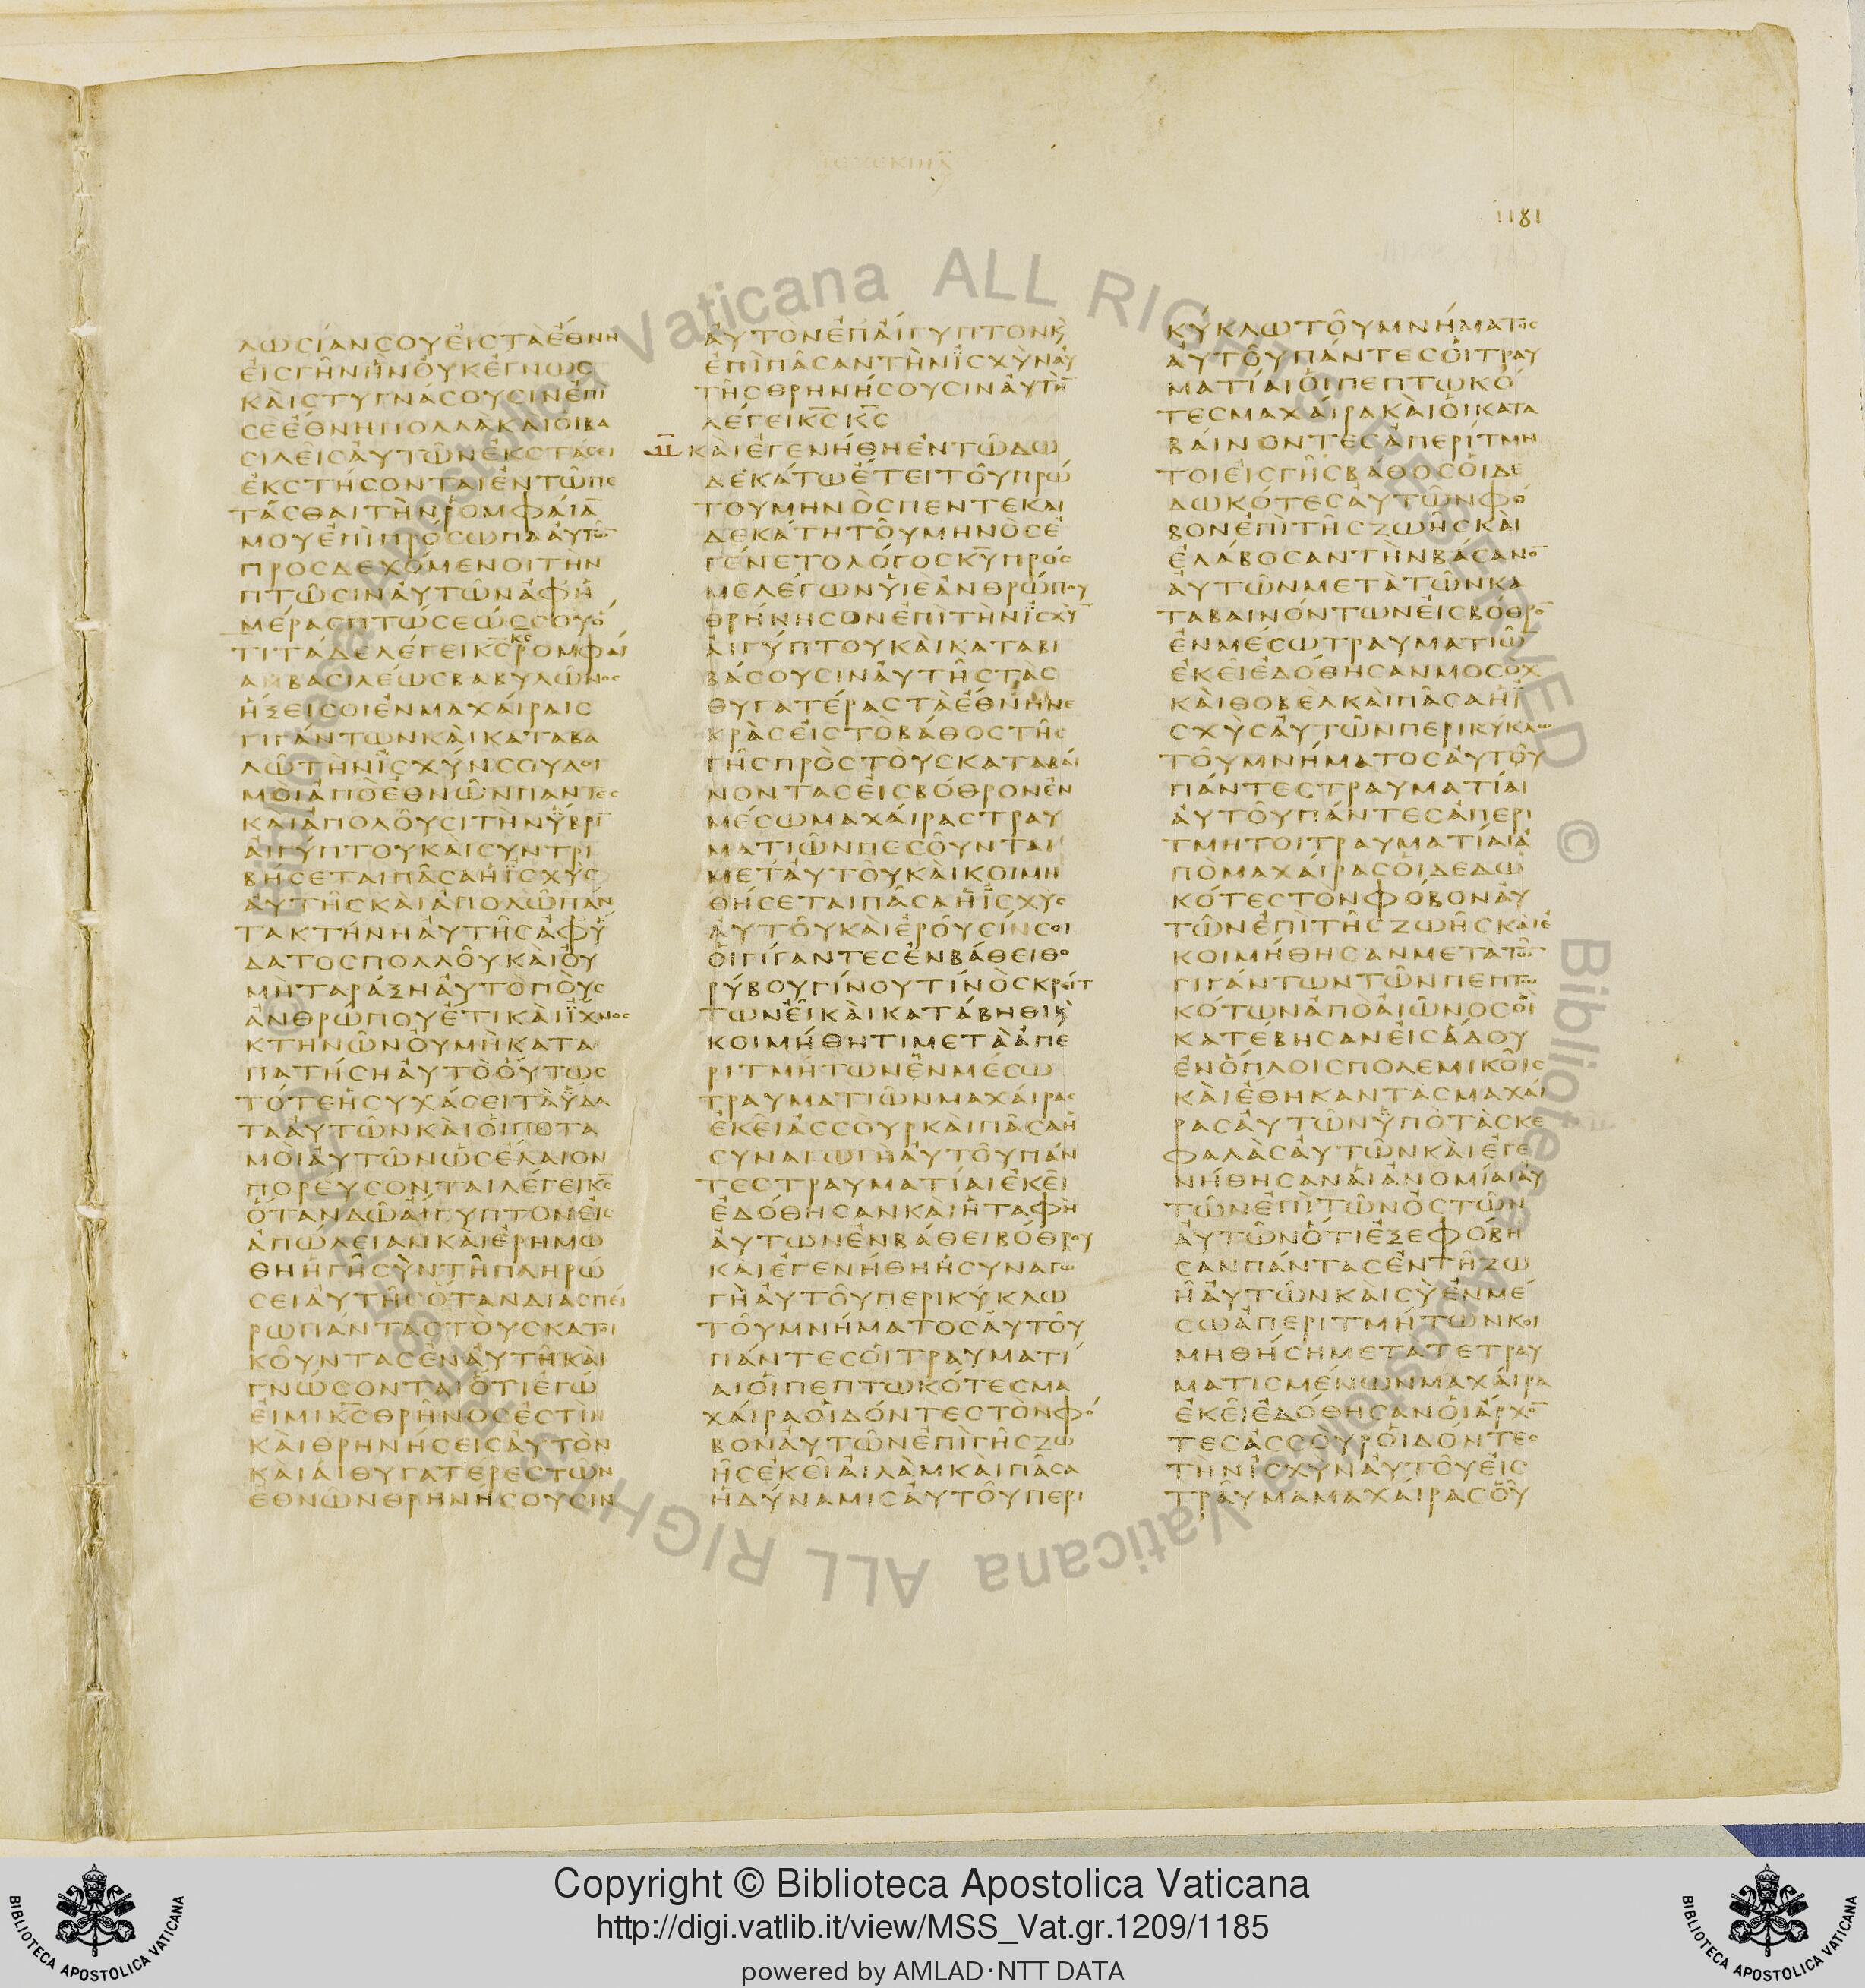 ΙΕΖΕΚΙΗΛ
1181
λωσίανσουεἰστὰἔθνη
εἰσγῆνἣνοὐκἔγνωσ
καὶστυγνάσουσινἐπὶ
σὲἔθνηπολλὰκαὶοἱβα
σιλεῖσαὐτῶνἐκστάσει
ἐκστήσονταιἐντῶπε
τᾶσθαιτὴνῥομφαία̅
μουἐπὶπρόσωπααὐτω̅
προσδεχόμενοιτὴν
πτῶσιναὐτῶνἀφἡ
μέρασπτώσεώσσουὅ
τιτάδελέγεικ̅σ̅ῥομφαί
αβασιλέωσβαβυλῶνοσ
ἥξεισοιἐνμαχαίραισ
γιγάντωνκαὶκαταβα
λῶτὴνἰσχύνσουλοι
μοὶἀπὸἐθνῶνπάντεσ
καὶἀπολοῦσιτὴνὕβρι̅
αἰγύπτουκαὶσυντρι
βήσεταιπᾶσαἡἰσχὺσ
αὐτῆσκαὶἀπολῶπάν
τακτήνηαὐτῆσἀφὕ
δατοσπολλοῦκαὶοὐ
μὴταράξηαὐτὸποὺσ
ἀνθρώπουἔτικαὶἴχνοσ
κτηνῶνοὐμὴκατα
πατήσηαὐτὸοὕτωσ
τότεἡσυχάσειτὰὕδα
τααὐτῶνκαὶοἱποτα
μοὶαὐτῶνὡσἔλαιον
πορεύσονταιλέγεικ̅σ̅
ὅτανδῶαἴγυπτονεἰσ
ἀπώλειανκαὶἐρημω
θῆἡγῆσὺντῆπληρώ
σειαὐτῆσὅτανδιασπεί
ρωπάνταστοὺσκατοι
κοῦντασἐναὐτῆκαὶ
γνώσονταιὅτιἐγώ
εἰμικ̅σ̅θρῆνοσἐστὶν
καὶθρηνήσεισαὐτὸν
καὶαἱθυγατέρεστῶν
ἐθνῶνθρηνήσουσιν
αὐτονἐπαἴγυπτονκ̀
ἐπὶπᾶσαντὴνἰσχὺναὐ
τῆσθρηνήσουσιναὐτη̅
λέγεικ̅σ̅κ̅σ̅
καὶἐγενήθηἐντῶδω
δεκάτωἔτειτοῦπρώ
τουμηνὸσπεντεκαι
δεκάτητοῦμηνὸσἐ
γένετολόγοσκ̅υ̅πρόσ
μελέγωνυἱὲἀνθρώπου
θρήνησονἐπὶτὴνἰσχὺ̅
αἰγύπτουκαὶκαταβι
βάσουσιναὐτῆστὰσ
θυγατέραστὰἔθνηνε
κρὰσεἰστὸβάθοστῆσ
γῆσπρὸστοὺσκαταβαί
νοντασεἰσβόθρονἐν
μέσωμαχαίραστραυ
ματιῶνπεσοῦνται
μετ'αὐτοῦκαὶκοιμη
θήσεταιπᾶσαἡἰσχὺσ
αὐτοῦκαὶἐροῦσίνσοι
οἱγίγαντεσἐνβάθειθο
ρύβουγίνουτίνοσκρείτ
τωνεἶκαὶκατάβηθικ̀
κοιμήθητιμετὰἀπε
ριτμήτωνἐνμέσω
τραυματιῶνμαχαίρασ
ἐκεῖἀσσοὺρκαὶπᾶσαἡ
συναγωγὴαὐτοῦπάν
τεστραυματίαιἐκεῖ
ἐδόθησανκαὶἡταφὴ
αὐτωνἐνβάθειβόθρου
καὶἐγενήθηἡσυναγω
γὴαὐτοῦπερικύκλω
τοῦμνήματοσαὐτοῦ
πάντεσοἱτραυματί
αιοἱπεπτωκότεσμα
χαίραοἱδόντεστὸνφό
βοναὐτῶνἐπὶγῆσζω
ῆσἐκεῖαἰλὰμκαὶπᾶσα
ἡδύναμισαὐτοῦπερι
κύκλωτοῦμνήματοσ
αὐτοῦπάντεσοἱτραυ
ματίαιοἱπεπτωκό
τεσμαχαίρακαὶοἱκατα
βαίνοντεσἀπερίτμη
τοιεἰσγῆσβάθοσοἱδε
δωκότεσαὐτῶνφό
βονἐπὶτῆσζωῆσκαὶ
ἐλάβοσαντὴνβάσανο̅
αὐτῶνμετὰτῶνκα
ταβαινόντωνεἰσβόθρο̅
ἐνμέσωτραυματιῶ̅
ἐκεῖἐδόθησανμοσὸχ
καὶθοβὲλκαὶπᾶσαἡἰ
σχὺσαὐτῶνπερικύκλω
τοῦμνήματοσαὐτοῦ
πάντεστραυματίαι
αὐτοῦπάντεσἀπερί
τμητοιτραυματίαιἀ
πὸμαχαίρασοἱδεδω
κότεστὸνφόβοναὐ
τῶνἐπὶτῆσζωῆσκαὶἐ
κοιμήθησανμετὰτω̅
γιγάντωντῶνπεπτω
κότωνἀπὸαἰῶνοσοἳ
κατέβησανεἰσἅδου
ἐνὅπλοισπολεμικοῖσ
καὶἔθηκαντὰσμαχαί
ρασαὐτῶνὑπὸτὰσκε
φαλὰσαὐτῶνκαὶἐγε
νήθησαναἱἀνομίαιαὐ
τῶνἐπὶτῶνὀστῶν
αὐτῶνὅτιἐξεφόβη
σανπάντασἐντῆζω
ῆαὐτῶνκαὶσὺἐνμέ
σωἀπεριτμήτωνκοι
μηθήσημετὰτετραυ
ματισμένωνμαχαίρα
ἐκεῖἐδόθησανοἱἄρχο̅
τεσἀσσοὺροἱδόντεσ
τὴνἰσχὺναὐτοῦεἰσ
τραῦμαμαχαίρασοὗ
Copyright © Biblioteca Apostolica Vaticana
http://digi.vatlib.it/view/MSS_Vat.gr.1209/1185
powered by AMLAD·NTT DATA
BIBLIOTECA APOSTOLICA VATICANA
BIBLIOTECA APOSTOLICA VATICANA